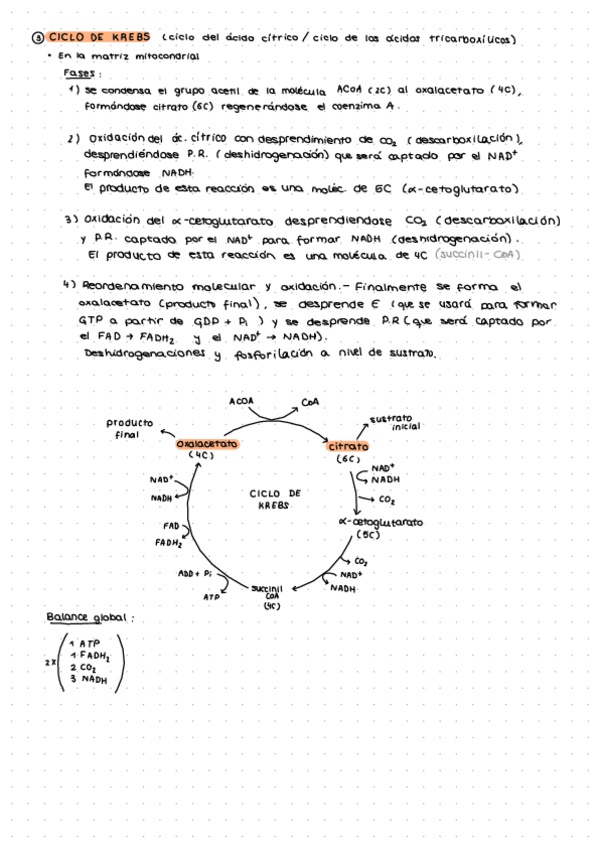 ③ CICLO DE KREBS (ciclo del ácido cítrico / ciclo de los ácidos tricarboxílicos)
• En la matriz mitocondrial
Fases:
1) se condensa el grupo acetil de la molécula ACoA (2C) al oxalacetato (4C),
formándose citrato (6C) regenerándose el coenzima A.
2) Oxidación del ác. cítrico con desprendimiento de CO₂ (descarboxilación),
desprendiéndose P.R. (deshidrogenación) que será captado por el NAD⁺
formándose NADH.
El producto de esta reacción es una moléc. de 5C (α-cetoglutarato)
3) Oxidación del α-cetoglutarato desprendiendose CO₂ (descarboxilación)
y P.R. captado por el NAD⁺ para formar NADH (deshidrogenación).
El producto de esta reacción es una molécula de 4C (succinil-CoA)
4) Reordenamiento molecular y oxidación.- Finalmente se forma el
oxalacetato (producto final), se desprende E (que se usará para formar
GTP a partir de GDP + Pi) y se desprende P.R (que será captado por
el FAD → FADH₂ y el NAD⁺ → NADH).
Deshidrogenaciones y fosforilación a nivel de sustrato.
ACOA
CoA
producto
final
sustrato
inicial
oxalacetato
(4C)
citrato
(6C)
NAD⁺
NADH
CO₂
NAD⁺
NADH
CICLO DE
KREBS
α-cetoglutarato
(5C)
FAD
FADH₂
CO₂
NAD⁺
NADH
ADD + Pi
ATP
succinil
CoA
(4C)
Balance global:
2x
1 ATP
1 FADH₂
2 CO₂
3 NADH